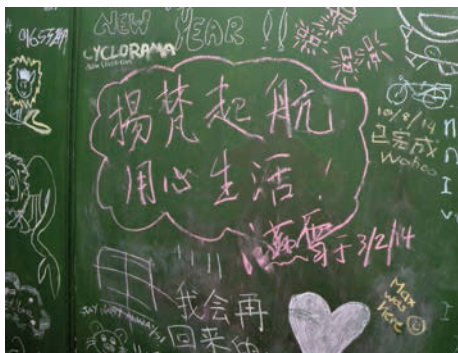 NEW YEAR !!
CYCLORAMA
扬梵起航
用心生活！
于 3/2/14
10/8/14
已完成
Wohoo
我会再
回来的
Max
was
Here